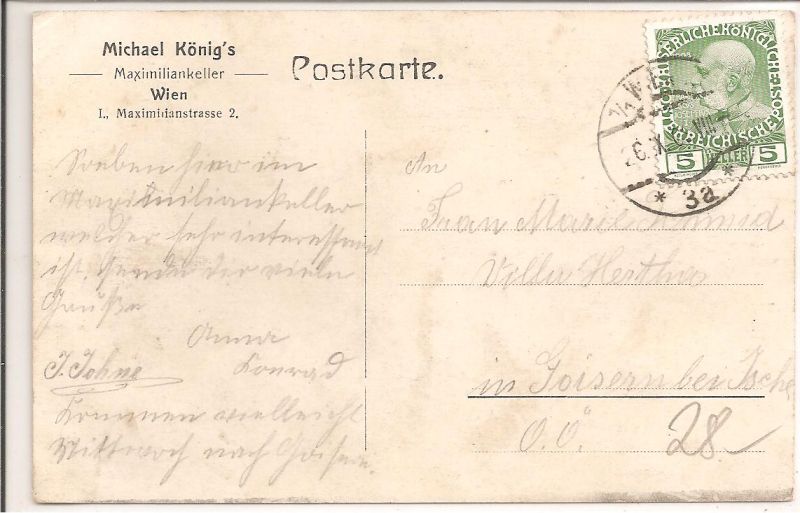 Michael König's
Maximiliankeller
Wien
I., Maximilianstrasse 2.
Postkarte.
KAISERLICHE KÖNIGLICHE ÖSTERREICHISCHE POST
5 HELLER 5
1/1 WIEN
26. X
* 3a *
Soeben hier im
Maximiliankeller
welcher sehr interessant
ist, sende dir viele
Grüße
Anna
Konrad
J. Johne
Kommen vielleicht
Mittwoch nach Goisern.
An
Frau Marie Schmid
Villa Hertha
in Goisern bei Ischl
O. Ö.
28